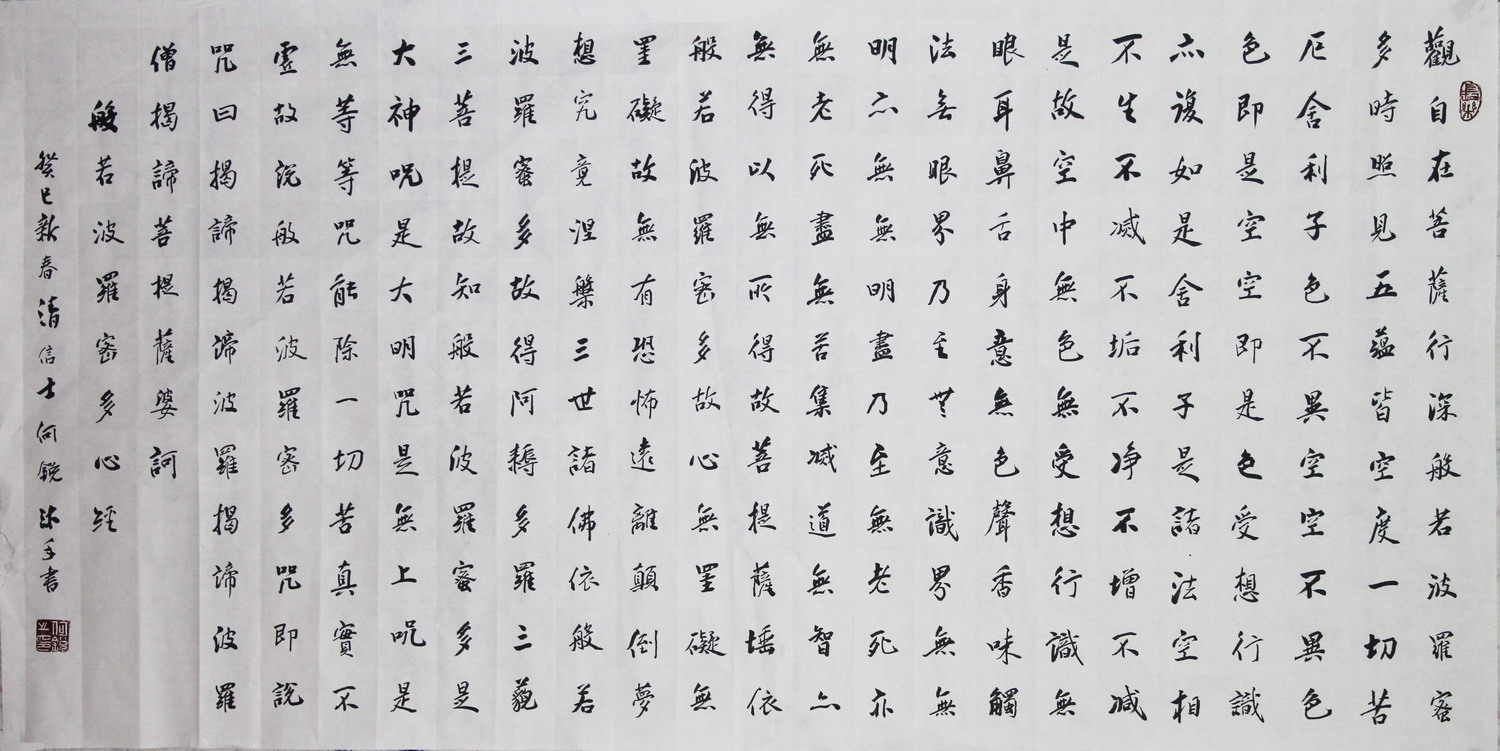 觀自在菩薩行深般若波羅蜜
多時照見五蘊皆空度一切苦
厄舍利子色不異空空不異色
色即是空空即是色受想行識
亦復如是舍利子是諸法空相
不生不滅不垢不净不增不减
是故空中無色無受想行識無
眼耳鼻舌身意無色聲香味觸
法無眼界乃至無意識界無無
明亦無無明盡乃至無老死亦
無老死盡無苦集滅道無智亦
無得以無所得故菩提薩埵依
般若波羅密多故心無罣礙無
罣礙故無有恐怖遠離顛倒夢
想究竟涅槃三世諸佛依般若
波羅蜜多故得阿耨多羅三藐
三菩提故知般若波羅蜜多是
大神咒是大明咒是無上咒是
無等等咒能除一切苦真實不
虛故說般若波羅密多咒即說
咒曰揭諦揭諦波羅揭諦波羅
僧揭諦菩提薩婆訶
般若波羅密多心經
癸巳新春清信士何銳沐手書
何銳之印